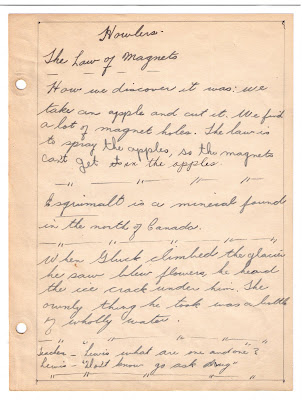 Howlers.
The Law of Magnets
How we discover it was: we
take an apple and cut it. We find
a lot of magnet holes. The law is
to spray the apples, so the magnets
can't get in the apples.
Esquimalt is a mineral found
in the north of Canada.
When Gluck climbed the glacier
he saw blew flowers, he heard
the ice crack under him. The
ownly thing he took was a bottle
of wholly water.
Teacher - "Lewis what are one and one"?
Lewis - "I don't know go ask